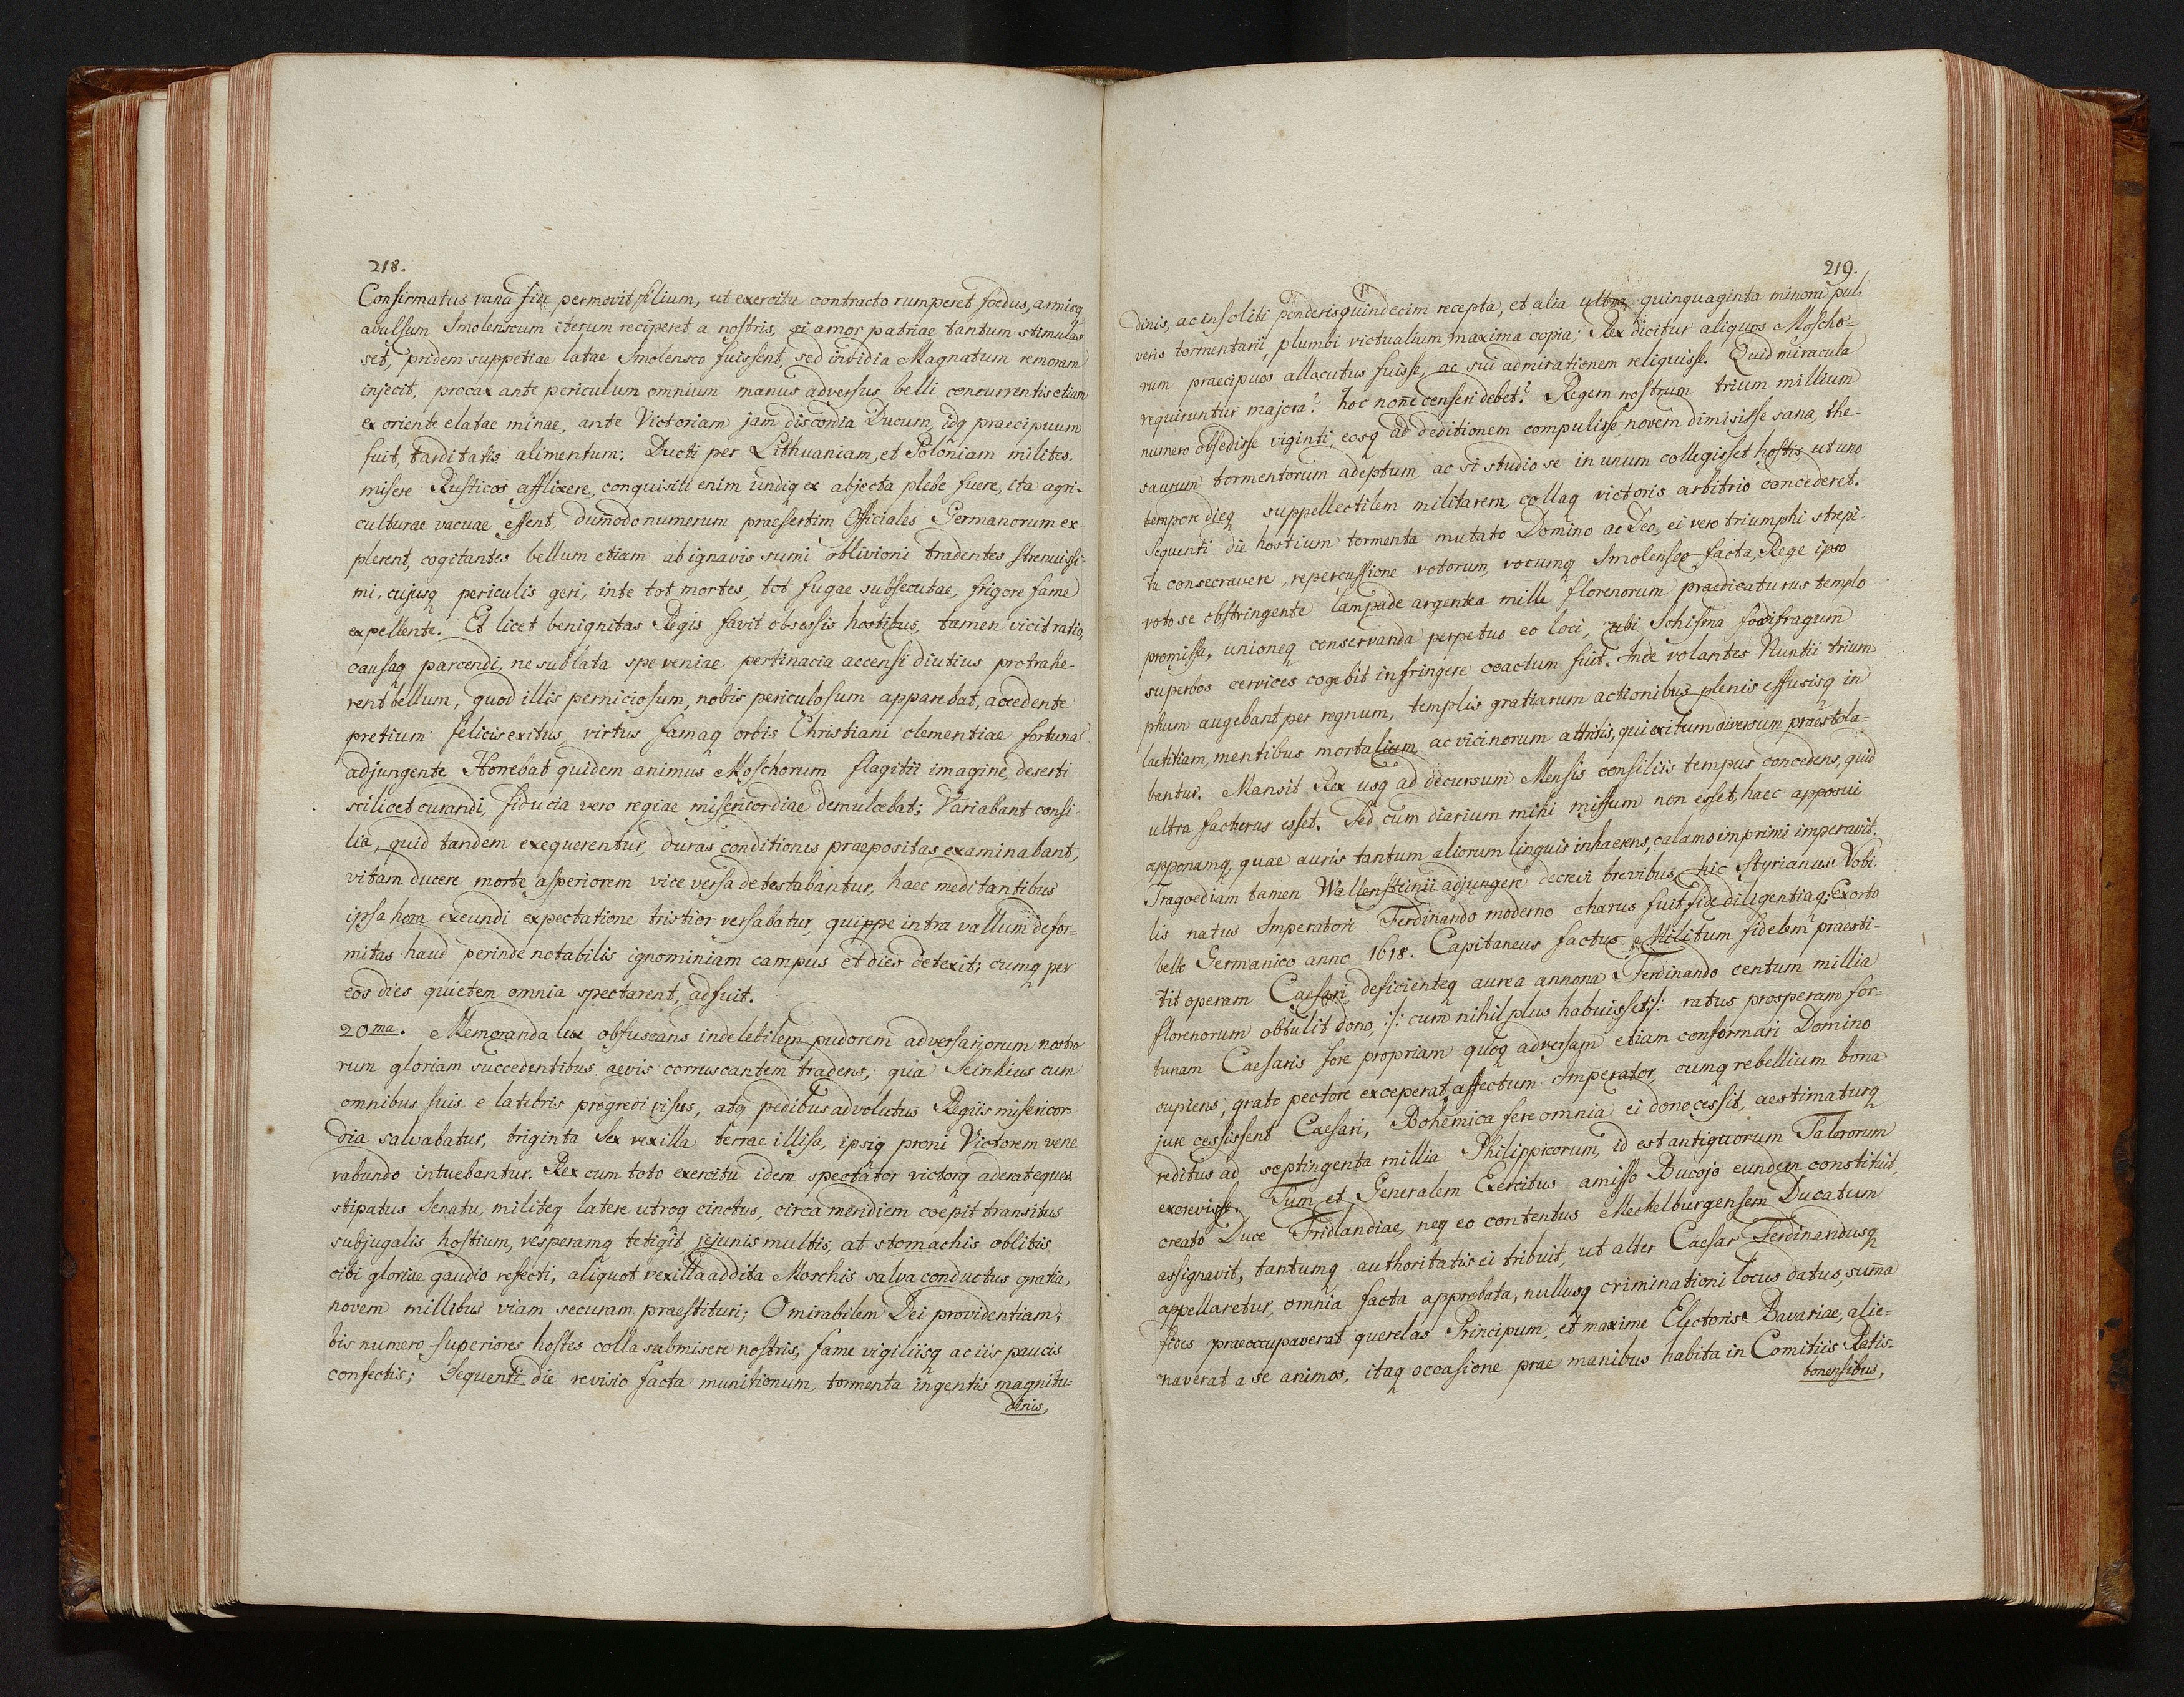 218.
Confirmatus vana fide permovit filium, ut exercitu contracto rumperet foedus, armisq
avulsum Smolenscum iterum reciperet a nostris, si amor patriae tantum stimulas
set, pridem suppetiae latae Smolensco fuissent, sed invidia Magnatum remoram
injecit, procax ante periculum omnium manus adversus belli concurrentis etiam
ex oriente elatae minae, ante Victoriam jam discordia Ducum, idq praecipuum
fuit, tarditatis alimentum: Ducti per Lithuaniam, et Poloniam milites.
misere Rusticos afflixere, conquisiti enim undiq ex abjecta plebe fuere, ita agri-
culturae vacuae essent, dum̄odo numerum praesertim Officiales Germanorum ex-
plerent, cogitantes bellum etiam ab ignavis sumi oblivioni tradentes strenuissi-
mi, cujusq periculis geri, inte tot mortes, tot fugae subsecutae, frigore fame
expellente. Et licet benignitas Regis favit obsessis hostibus, tamen vicit ratio,
causaq parcendi, ne sublata spe veniae pertinacia accensi diutius protrahe-
rent bellum, quod illis perniciosum, nobis periculosum apparebat, accedente
pretium felicis exitus virtus famaq orbis Christiani clementiae fortuna
adjungente. Horrebat quidem animus Moschorum flagitii imagine, deserti
scilicet curandi, fiducia vero regiae misericordiae demulcebat; Variabant consi-
lia, quid tandem exequerentur, duras conditiones praepositas examinabant,
vitam ducere morte asperiorem vice versa detestabantur, haec meditantibus
ipsa hora exeundi expectatione tristior versabatur, quippe intra vallum defor-
mitas haud perinde notabilis ignominiam campus et dies detexit; cumq per
eos dies quietem omnia spectarent, adfuit.
20ma. Memoranda lux obfuscans indelebilem pudorem adversariorum nostro
rum gloriam succedentibus aevis corruscantem tradens, quia Seinkius cum
omnibus suis e latebris progredi visus, atq pedibus advolutus Regiis misericor-
dia salvabatur, triginta sex vexilla terrae illisa, ipsiq proni Victorem vene
rabundo intuebantur. Rex cum toto exercitu idem spectator victorq aderat eques
stipatus Senatu, militeq latere utroq cinctus, circa meridiem coepit transitus
subjugalis hostium, vesperamq tetigit, jejunis multis, at stomachis oblitis
cibi gloriae gaudio refecti, aliquot vexilla addita Moschis salva conductus gratia,
novem millibus viam securam praestituri; O mirabilem Dei providentiam;
bis numero superiores hostes colla submisere nostris, fame vigiliisq ac iis paucis
confectis; Sequenti die revisio facta munitionum, tormenta ingentis magnitu-
dinis,
219.
dinis, ac insoliti ponderis quindecim recepta, et alia ultra quinquaginta minora pul-
veris tormentarii, plumbi victualium maxima copia; Rex dicitur aliquos Moscho-
rum praecipuos allocutus fuisse, ac sui admirationem reliquisse. Quid miracula
requiruntur majora? hoc non̄e censeri debet? Regem nostrum trium millium
numero obsedisse viginti, eosq ad deditionem compulisse, novem dimisisse sana, the-
saurum tormentorum adeptum ac si studio se in unum collegisset hostis, ut uno
tempore dieq suppellectilem militarem, collaq victoris arbitrio concederet.
Sequenti die hostium tormenta mutato Domino ac Deo, ei vero triumphi strepi-
tu consecravere, repercussione votorum, vocumq Smolensco facta, Rege ipso
voto se obstringente lampade argentea mille florenorum praedicaturus templo
promissa, unioneq conservanda perpetuo eo loci, ubi Schisma foedifragum
superbos cervices cogebit infringere coactum fuit. Inde volantes Nuntii trium
phum augebant per regnum, templis gratiarum actionibus plenis effusisq in
laetitiam, mentibus mortalium ac vicinorum attritis, qui exitum diversum praestola-
bantur. Mansit Rex usq ad decursum Mensis consiliis tempus concedens, quid
ultra facturus esset. Sed cum diarium mihi missum non esset, haec apposui
apponamq, quae auris tantum aliorum linguis inhaerens, calamo imprimi imperavit.
Tragoediam tamen Wallensteinii adjungere decrevi brevibus, hic Styrianus Nobi-
lis natus Imperatori Ferdinando moderno charus fuit fide diligentiaq; Exorto
bello Germanico anno 1618. Capitaneus factus Militum fidelem praesti-
tit operam Caesari, deficienteq aurea annona Ferdinando centum millia
florenorum obtulit dono, :/: cum nihil plus habuisset :/: ratus prosperam for-
tunam Caesaris fore propriam quoq adversam etiam conformari Domino
cupiens, grato pectore exceperat affectum Imperator, cumq rebellium bona
jure cessissent Caesari, Bohemica fere omnia ei dono cessit, aestimaturq
reditus ad septingenta millia Philippicorum, id est antiquorum Talerorum
excrevisse. Tum et Generalem Exercitus amisso Bucojo eundem constituit,
creato Duce Fridlandiae, neq eo contentus Mechelburgensem Ducatum
assignavit, tantumq authoritatis ei tribuit, ut alter Caesar Ferdinandusq
appellaretur, omnia facta approbata, nullusq criminationi locus datus, sum̄a
fides praeoccupaverat querelas Principum, et maxime Electoris Bavariae, alie-
naverat a se animos, itaq occasione prae manibus habita in Comitiis Ratis-
bonensibus,